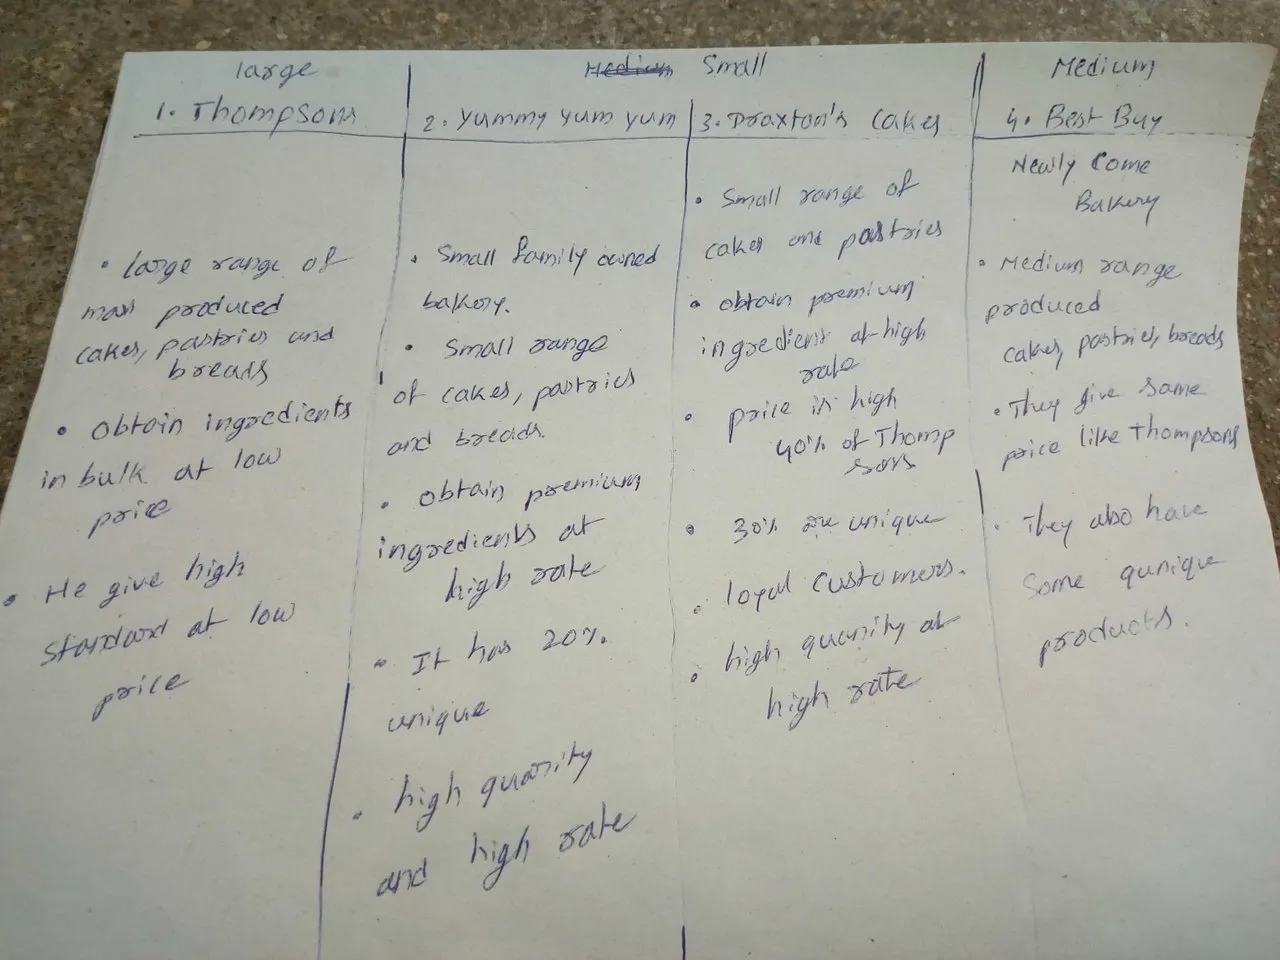 large
1. Thompsons
• large range of
mass produced
cakes, pastries and
breads
• obtain ingredients
in bulk at low
price
• He give high
standard at low
price
Medium Small
2. Yummy yum yum
• Small family owned
bakery.
• Small range
of cakes, pastries
and breads.
• obtain premium
ingredients at
high rate
• It has 20%.
unique
• high quanity
and high rate
3. Draxton's cakes
• Small range of
cakes and pastries
• obtain premium
ingredient at high
rate
• price is high
40% of Thomp
sons
• 30% are unique
• loyal customers.
• high quanity at
high rate
Medium
4. Best Buy
Newly Come
Bakery
• Medium range
produced
cakes, pastries, breads
• They give same
price like Thompsons
• They also have
Some qunique
products.